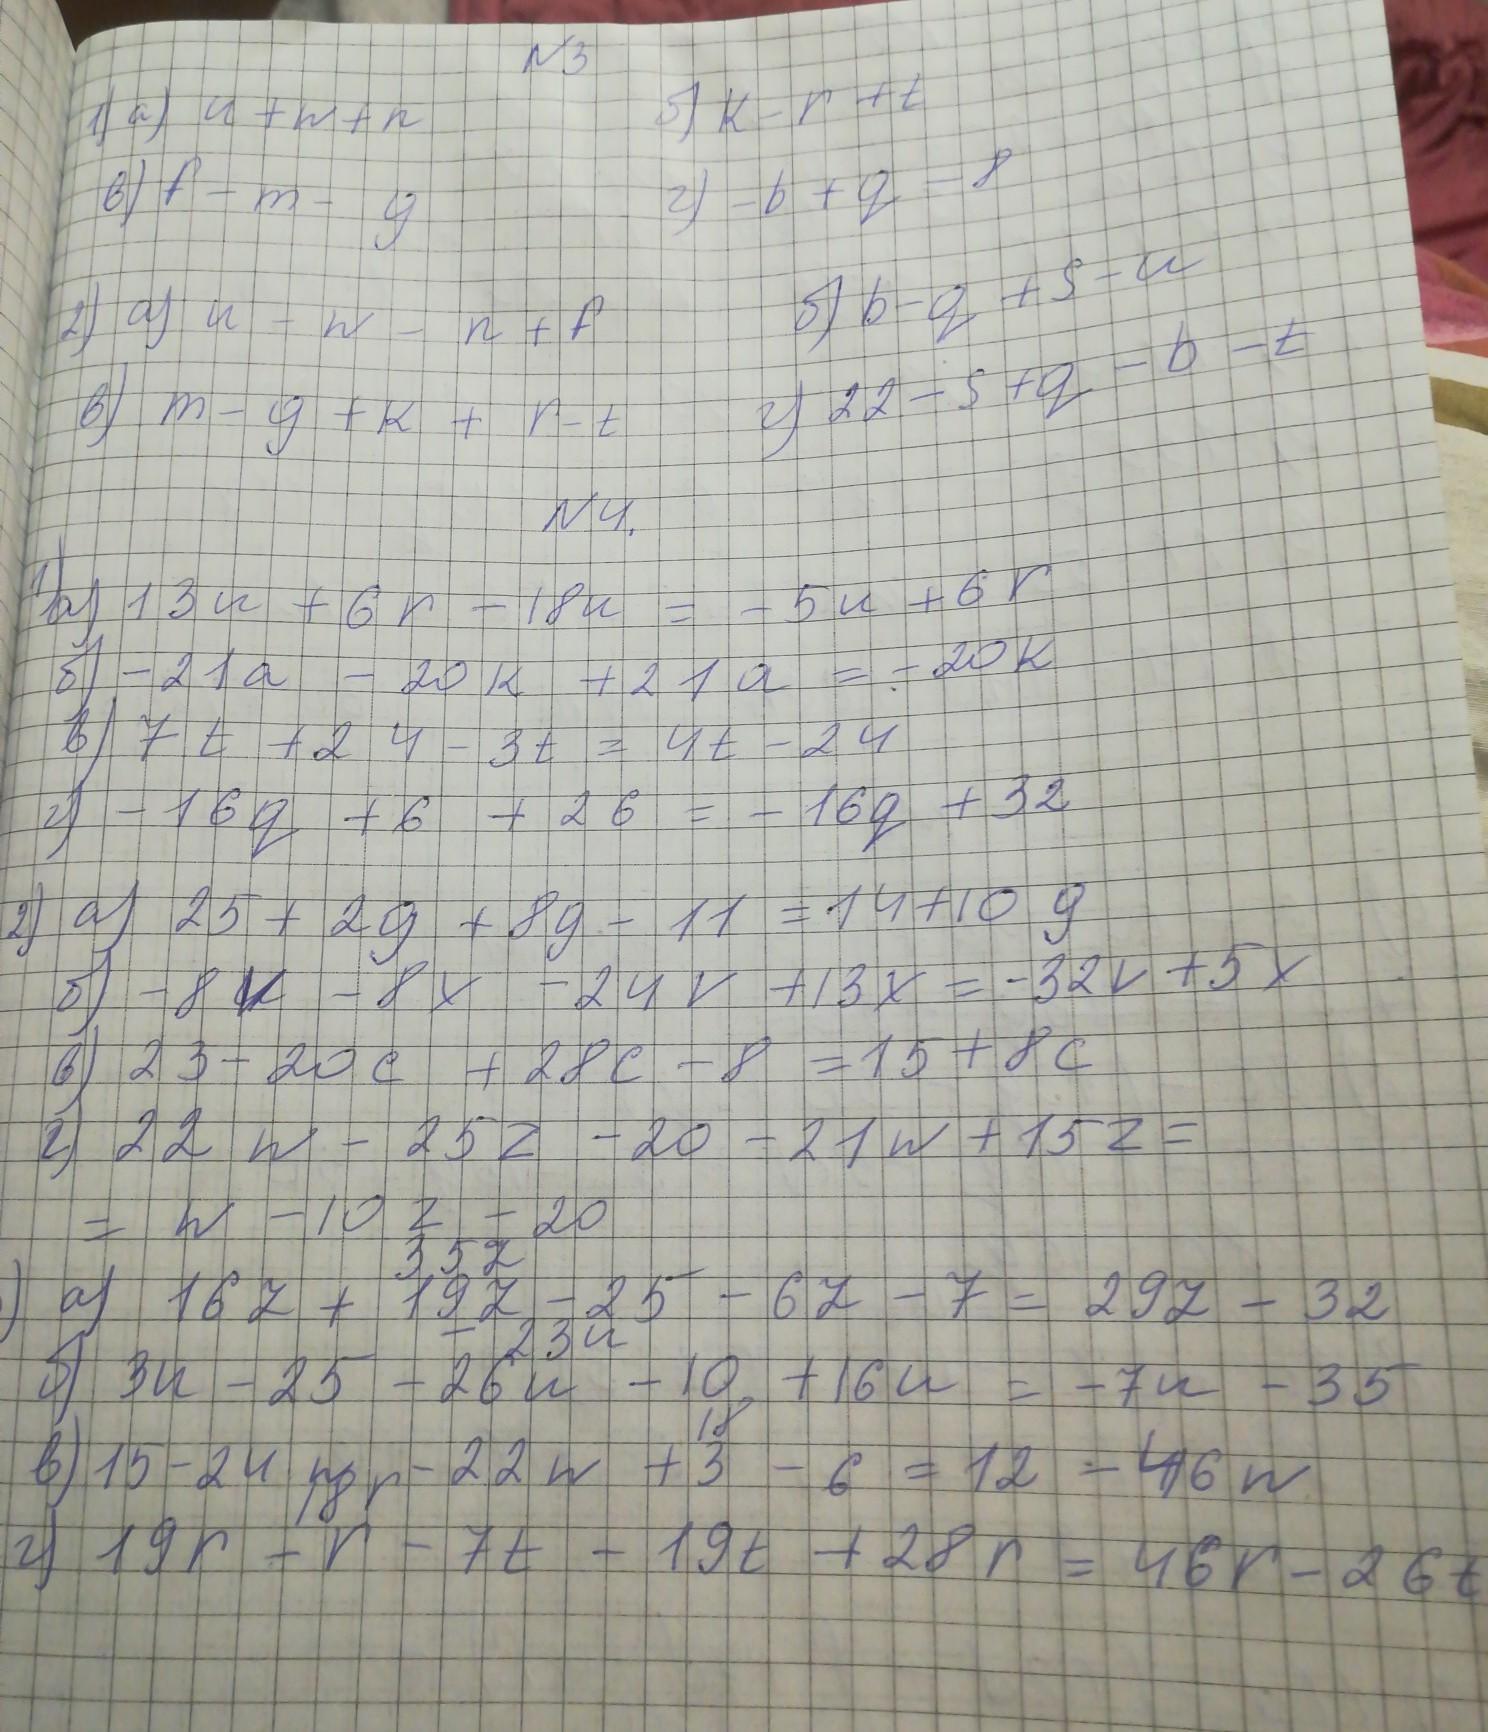 N3
1) а) u + w + n б) k - r + t
в) f - m - g г) -b + q - 8
2) а) u - w - n + f б) b - q + s - u
в) m - g + k + r - t г) 22 - s + q - b - t
N4.
1) а) 13u + 6r - 18u = -5u + 6r
б) -21a - 20k + 21a = -20k
в) 7t + 24 - 3t = 4t - 24
г) -16q + 6 + 26 = -16q + 32
2) а) 25 + 2g + 8g - 11 = 14 + 10g
б) -8v - 8x - 24v + 13x = -32v + 5x
в) 23 - 20c + 28c - 8 = 15 + 8c
г) 22w - 25z - 20 - 21w + 15z =
= w - 10z - 20
35z
) а) 16z + 19z - 25 - 6z - 7 = 29z - 32
- 23u
б) 3u - 25 - 26u - 10 + 16u = -7u - 35
18
в) 15 - 24w - 22w + 3 - 6 = 12 - 46w
18r
г) 19r - r - 7t - 19t + 28r = 46r - 26t